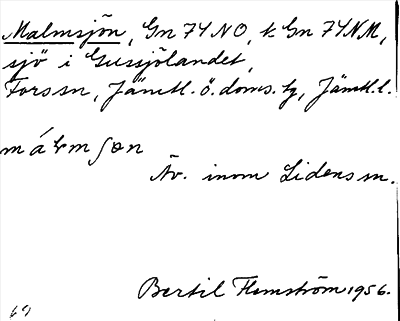 Malmsjön, Gn 74 NO, k. Gn 74 NM,
sjö i Gussjölandet,
Forssn, Jämtl. ö. doms. tg, Jämtl. l.
málmʃən
Äv. inom Lidens sn.
Bertil Flemström 1956.